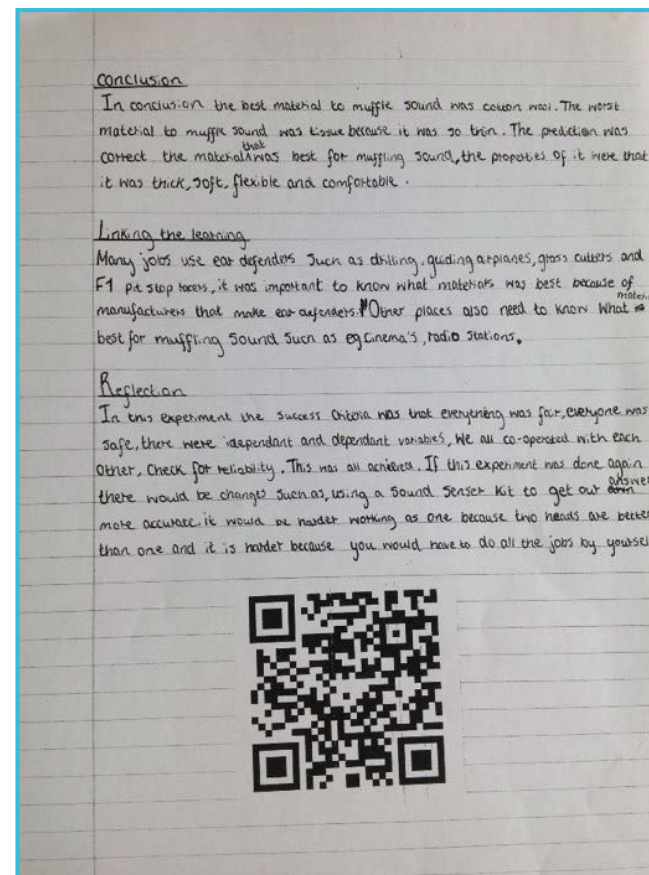 Conclusion
In conclusion the best material to muffle sound was cotton wool. The worst
material to muffle sound was tissue because it was so thin. The prediction was
correct the material that was best for muffling sound, the properties of it were that
it was thick, soft, flexible and comfortable.
Linking the learning
Many jobs use ear defenders such as drilling, guiding airplanes, grass cutters and
F1 pit stop racers, it was important to know what materials was best because of
manufacturers that make ear defenders. Other places also need to know what
best for muffling sound such as eg cinema's, radio stations.
Reflection
In this experiment the success criteria was that everything was fair, everyone was
safe, there were idependant and dependant variables, We all co-operated with each
other, check for reliability. This was all achieved. If this experiment was done again
there would be changes such as, using a sound senser kit to get out
more accurate. it would be harder working as one because two heads are better
than one and it is harder because you would have to do all the jobs by